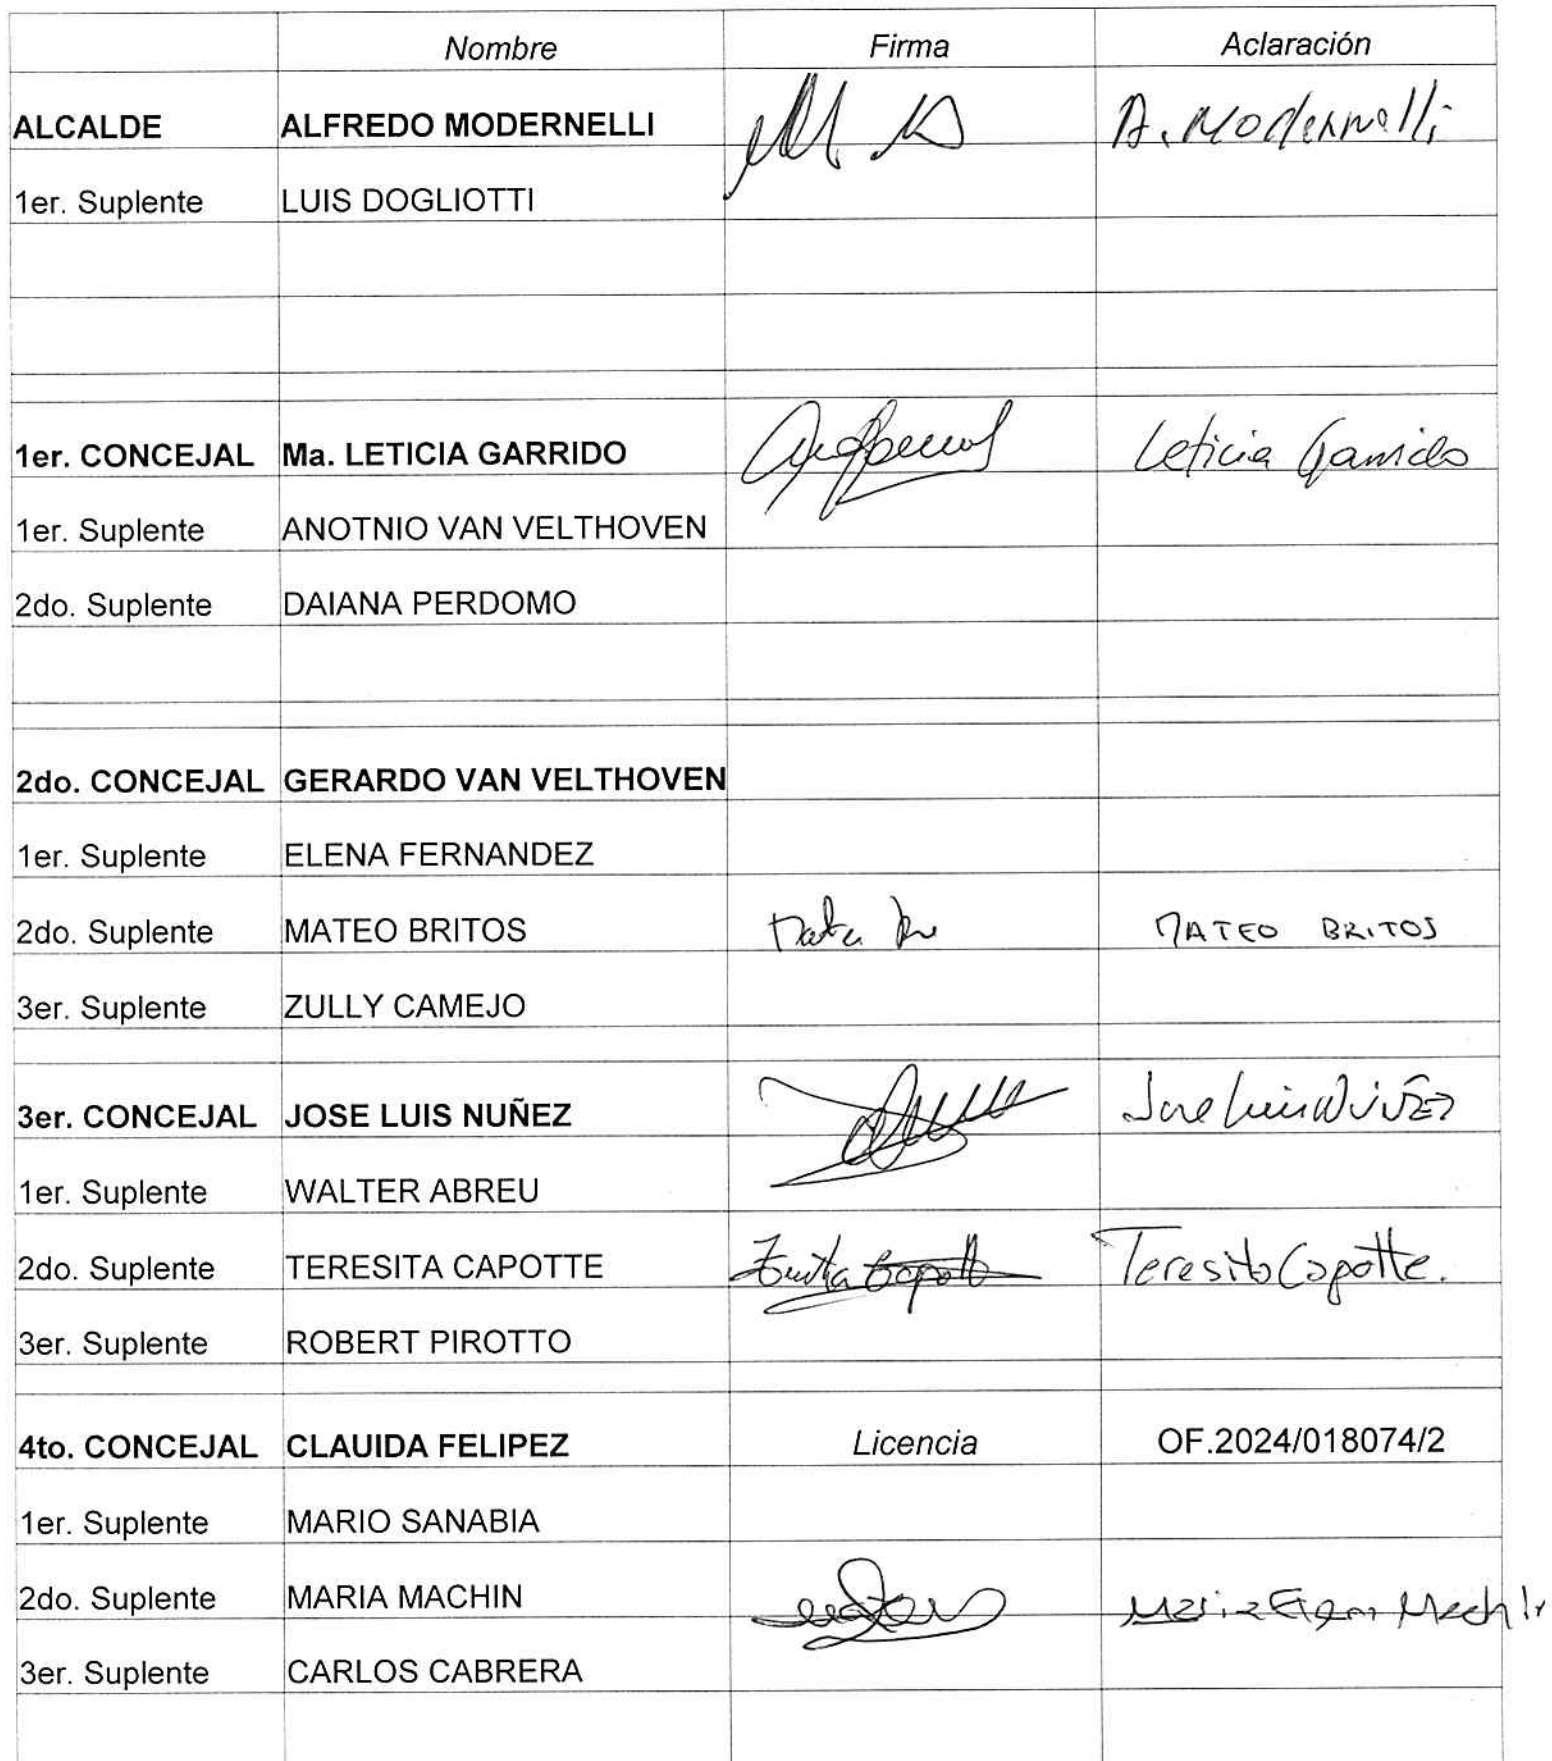 Nombre Firma Aclaración
ALCALDE ALFREDO MODERNELLI A. Modernelli
1er. Suplente LUIS DOGLIOTTI
1er. CONCEJAL Ma. LETICIA GARRIDO Leticia Garrido
1er. Suplente ANOTNIO VAN VELTHOVEN
2do. Suplente DAIANA PERDOMO
2do. CONCEJAL GERARDO VAN VELTHOVEN
1er. Suplente ELENA FERNANDEZ
2do. Suplente MATEO BRITOS MATEO BRITOS
3er. Suplente ZULLY CAMEJO
3er. CONCEJAL JOSE LUIS NUÑEZ Jose Luis NUÑEZ
1er. Suplente WALTER ABREU
2do. Suplente TERESITA CAPOTTE Teresita Capotte.
3er. Suplente ROBERT PIROTTO
4to. CONCEJAL CLAUIDA FELIPEZ Licencia OF.2024/018074/2
1er. Suplente MARIO SANABIA
2do. Suplente MARIA MACHIN Maria Machin
3er. Suplente CARLOS CABRERA